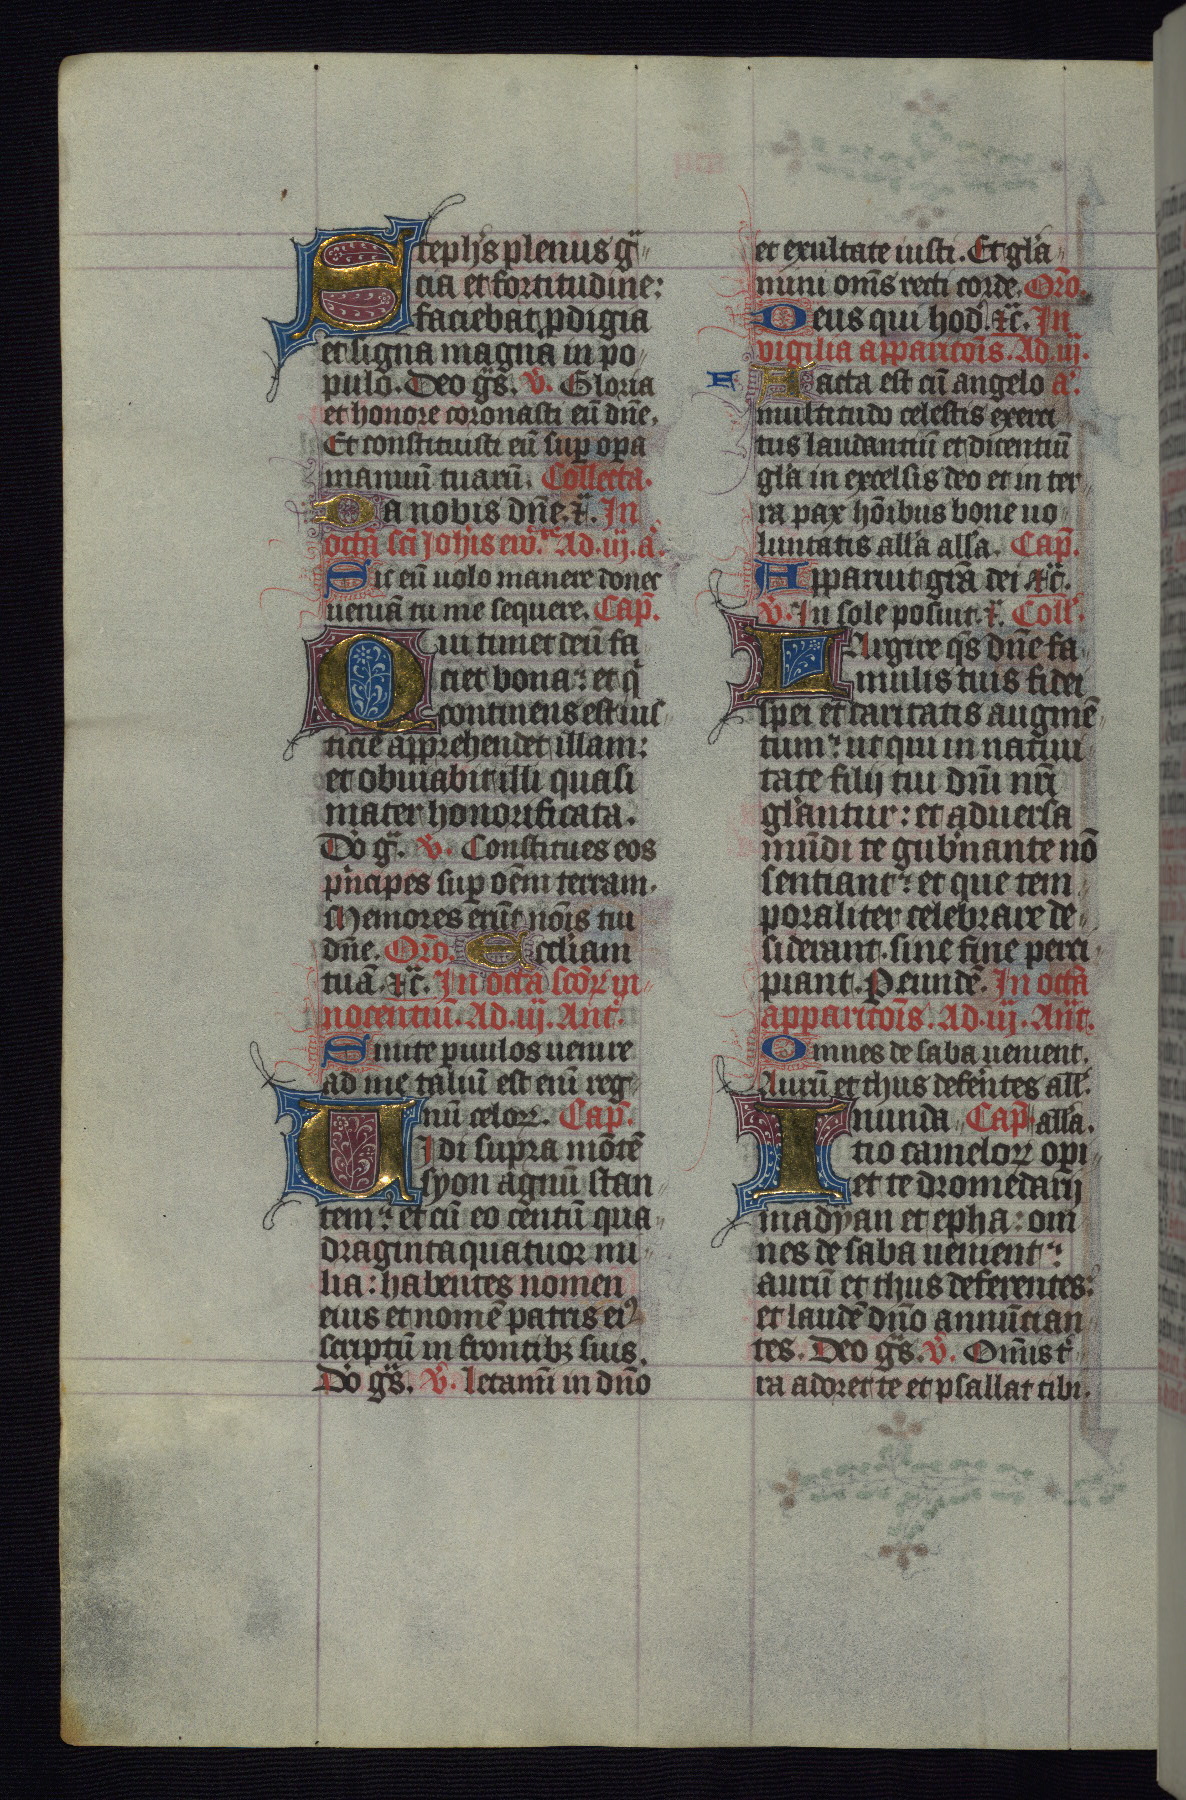 Stephs plenus gͣ
cia et fortitudine:
faciebat pdigia
et signa magna in po
pulo. Deo gͣs. v̓. Gloria
et honore coronasti eū dn̄e.
Et constituisti eū sup opa
manuū tuarū. Collecta.
Da nobis dn̄e. ⁊c̄. In
octā sc̄i Joh̄is ew̄. Ad .iij. a̓.
Sic eū uolo manere donec
ueniā tu me sequere. Cap̄.
Qui timet deū fa
ciet bona: et q̄
continens est ius
ticie apprehendet illam:
et obuiabit illi quasi
mater honorificata.
Dō gͣ. v̓. Constitues eos
p̓ncipes sup oēm terram.
Memores erūt nōis tui
dn̄e. Orō. Eccl̄iam
tuā. ⁊c̄. In octā scōꝝ in
nocentiū. Ad .iij. Ant̄.
Sinite puulos uenire
ad me taliū est enī reg
nū celoꝝ. Cap̄.
Uidi supra mōtē
syon agnū stan
tem: et cū eo centū qua
dragintaquatuor mi
lia: habentes nomen
eius et nomē patris eiꝰ
scriptū in frontibꝫ suis.
Dō gͣs. v̓. Letamī in dn̄o
et exultate iusti. Et gl̄a
mini om̄s recti corde. Orō.
Deus qui hod̄. ⁊c̄. In
vigilia apparitōis. Ad .iij.
Facta est cū angelo a̓.
multitudo celestis exerci
tus laudantiū et dicentiū
gl̄a in excelsis deo et in ter
ra pax hōibus bone uo
luntatis all̄a all̄a. Cap̄.
Apparuit gr̄a dei ⁊c̄.
v̓. In sole posuit. ⁊. Coll̄.
Largire q̄s dn̄e fa
mulis tuis fidei
spei et caritatis augmē
tum: ut qui in natiui
tate filij tui dn̄i nr̄i
gl̄antur: et aduersa
mūdi te gub̓nante nō
sentiant: et que tem
poraliter celebrare de
siderant. sine fine perci
piant. P eundē. In octā
apparitōis. Ad .iij. Ant̄.
Omnes de saba uenient.
Aurū et thus defer̄tes all̄.
Inunda Cap̄ all̄a.
tio cameloꝝ opi
et te dromedarij
madyan et epha: om
nes de saba uenient:
aurū et thus deferentes:
et laudē dn̄o annūcian
tes. Deo gͣs. v̓. Om̄is t̓
ra adoret te et psallat tibi.